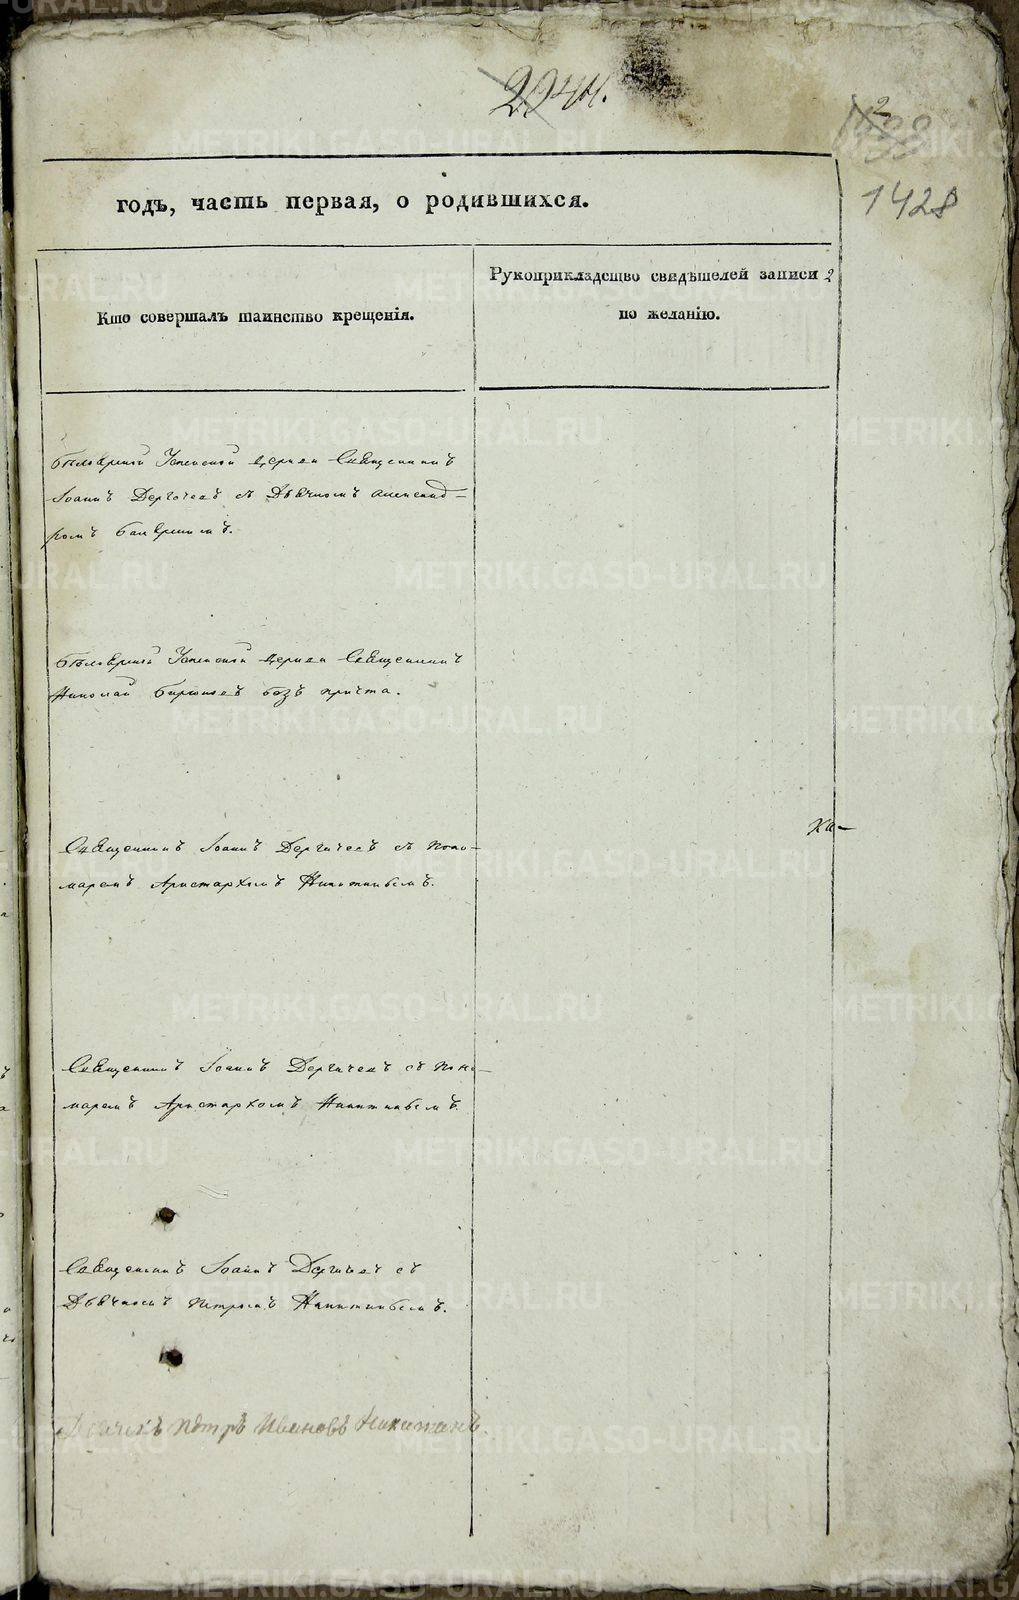 1428
годъ, часть первая, о родившихся.
Кто совершалъ таинство крещенія.
Рукоприкладство свидѣтелей записи
по желанію.
Церкви Священникъ
Іоаннъ Дергачевъ съ Дьячкомъ Александ-
ромъ
Церкви Священникъ
Николай Бирюковъ безъ причта.
Священникъ Іоаннъ Дергачевъ съ Поно-
маремъ Аристархомъ Никитинымъ.
Священникъ Іоаннъ Дергачевъ съ Поно-
маремъ Аристархомъ Никитинымъ.
Священникъ Іоаннъ Дергачевъ съ
Дьячкомъ Петромъ Никитинымъ.
Дьячекъ Петръ Ивановъ Никитинъ.
METRIKI.GASO-URAL.RU